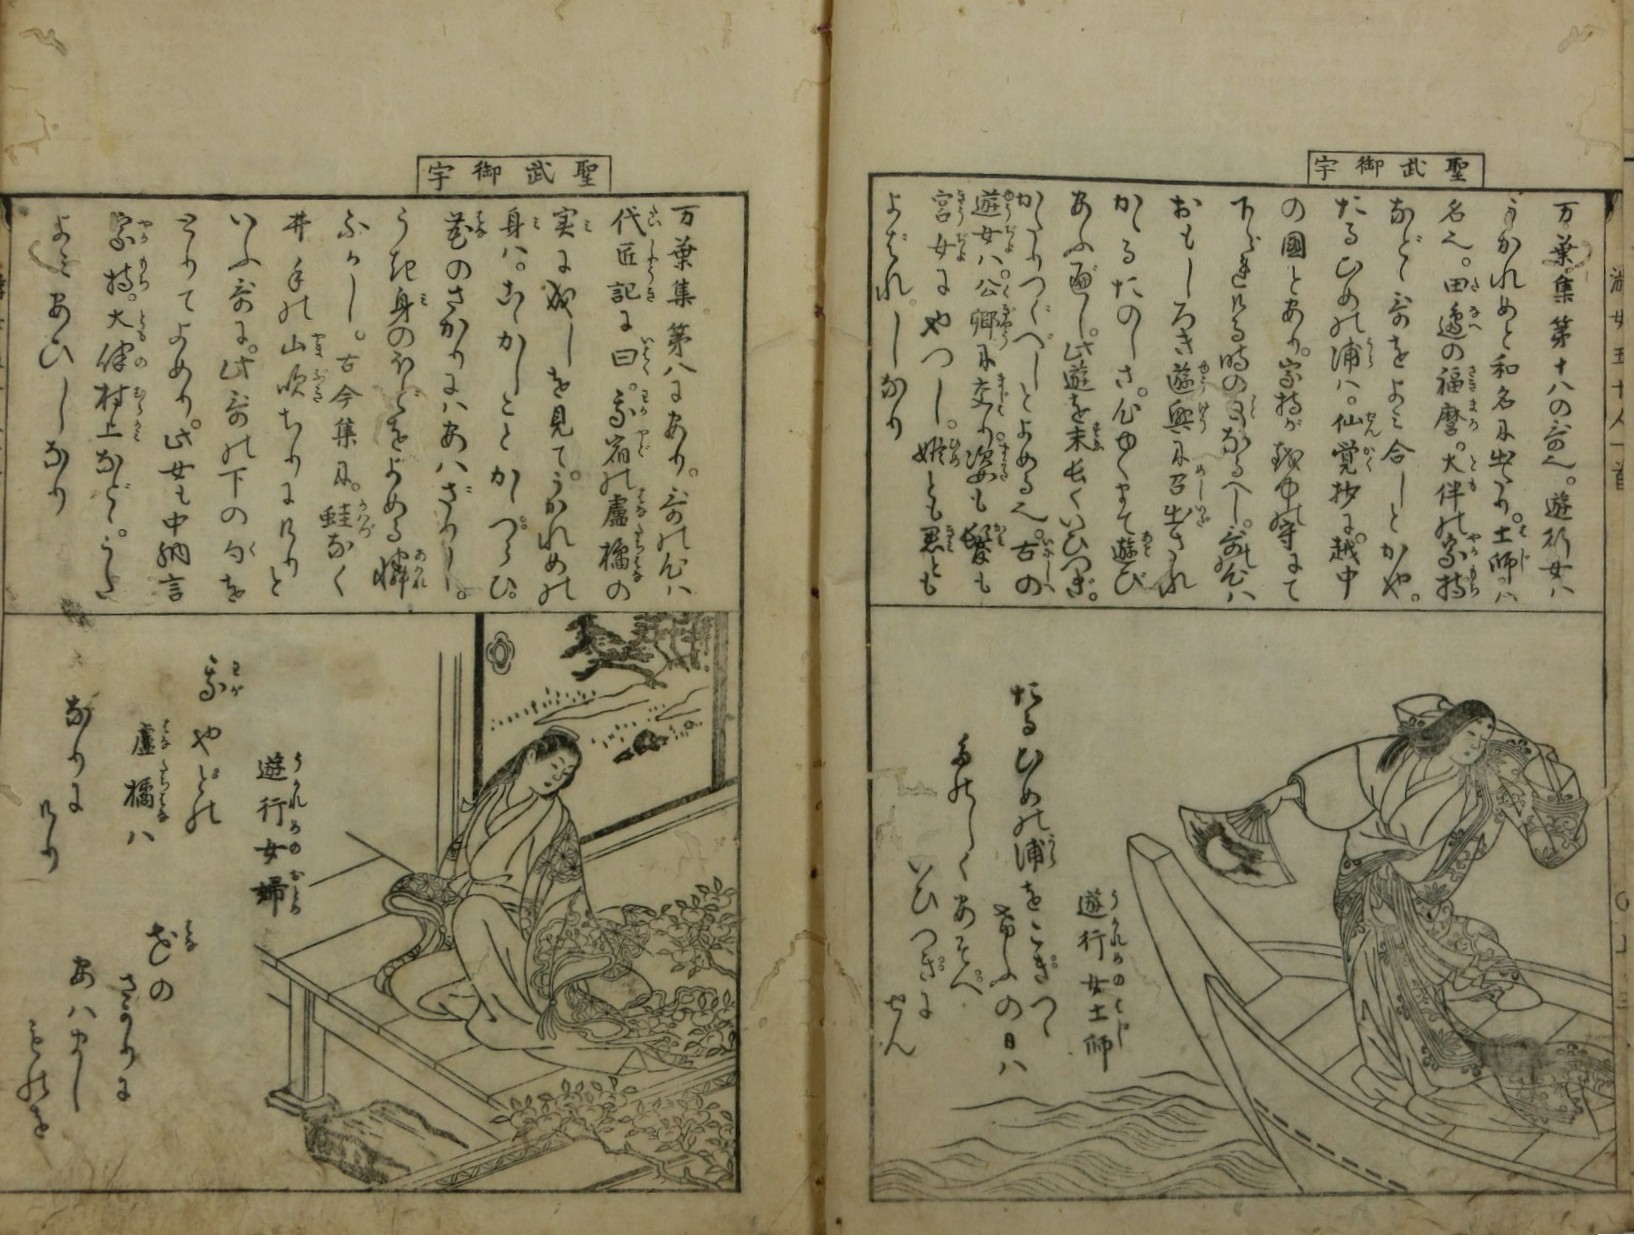 聖武御宇
万葉集第十八の哥也。遊行女ハ
うかれめと和名に出たり。土師ハ
名也。田邊の福麿。大伴の家持
などゝ哥をよみ合しとかや。
たるひめの浦ハ。仙覚抄に。越中
の國とあり。家持が越中の守にて
下られける時の事なるべし。哥の心ハ
おもしろき遊興に召出され
かゝるたのしさ。心ゆくまで遊び
あふべし。此遊を末長くいひつぎ。
かたりつぐべしとよめる也。古の
遊女ハ。公卿に交り。姿も
宮女にやつし。姫とも君とも
よばれしなり
遊行女土師
たるひめの浦をこぎつゝ
けふの日ハ
たのしくあそべ
いひつぎに
せん
聖武御宇
万葉集第八にあり。哥の心ハ
代匠記に曰。我宿の盧橘の
実に成しを見て。うかれめの
身ハ。こゝかしことかしづらひ。
花のさかりにハあハざりし。
うき身のほどをよめる憐
ふかし。古今集に。蛙なく
井手の山吹ちりにけりと
いふ哥に。此哥の下の句を
とりてよめり。此女も中納言
家持。大伴村上など。うた
よみあひしなり
遊行女婦
我やどの
花の
盧橘ハ
さかりに
なりに
けり
あハまし
ものを